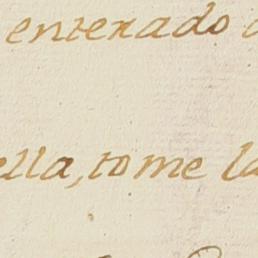 enterado
ella, tome la